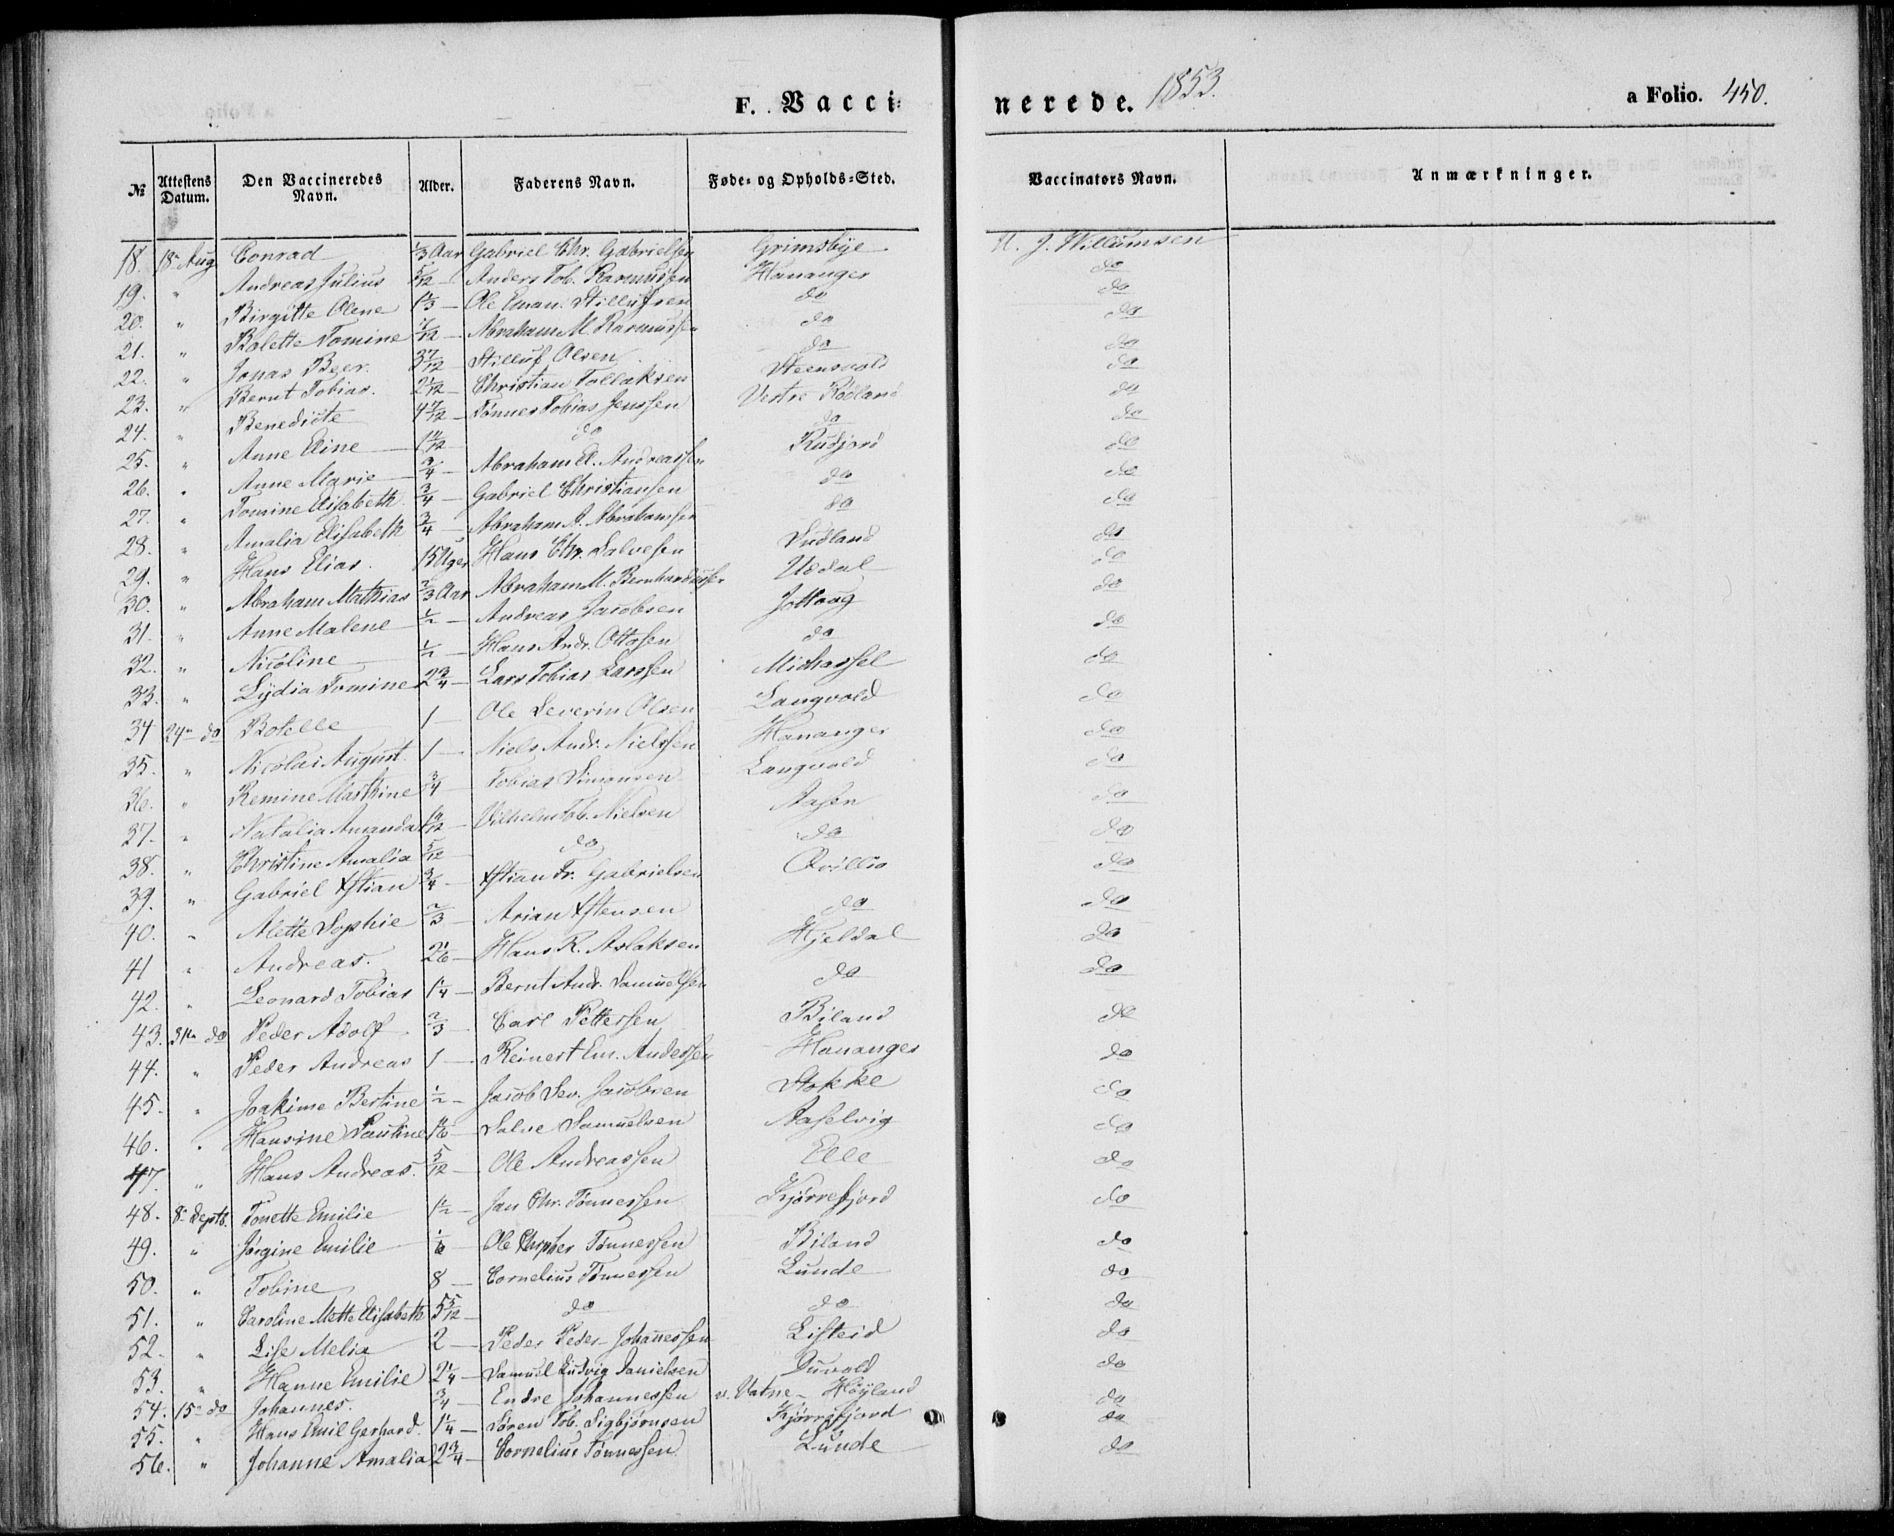 F. Vaccinerede. 1853. a Folio. 450.
№ Attestens Datum. Den Vaccineredes Navn. Alder. Faderens Navn. Føde- og Opholds-Sted. Vaccinators Navn. Anmærkninger.
18. 18n Aug Conrad 1/3 Aar Gabriel Chr. Gabrielsen Grimsbye J. Willumsen
19. " Andreas Julius 5/12 — Anders Tob. Rasmussen Hananger do
20. " Birgitte Olene 1 1/3 — Ole Eman. Stillufsen do do
21. " Bolette Tomine 7/12 — Abraham M. Rasmussen do do
22. " Jonas Beer. 3 7/12 Stilluf Olsen do do
23. " Bernt Tobias. 2 1/12 — Christian Tollaksen Steensvold do
24. " Benedicte 4 7/12 — Tønnes Tobias Jenssen Vestre Rødland do
25. " Anne Eline — do do do
26. " Anne Marie 3/4 — Abraham E. Andreassen Rudjord do
27. " Tomine Elisabeth 3/4 — Gabriel Christiansen do do
28. " Amalia Elisabeth 3/4 — Abraham A. Abrahamsen do do
29. " Hans Elias. 15 Uger Hans Chr. Salvesen Sudland do
30. " Abraham Mathias 2/3 Aar Abraham M. Bernhardussen Uedal do
31. " Anne Malene 1/2 — Andreas Jacobsen do
32. " Nicoline 1/2 — Hans Andr. Ottosen do do
33. " Lydia Tomine 2 3/4 — Lars Tobias Larssen Midhassel do
34 24n do Botelle 1 — Ole Severin Olsen Langvold do
35. " Nicolai August. 1 — Niels Andr. Nielssen Hananger do
36. " Remine Marthine 3/4 Tobias Simonsen Langvold do
37. " Natalia Amanda — Vilhelm Tob. Nielsen Aasen do
38. " Christine Amalia 5/12 do do do
39. " Gabriel Xstian 3/4 — Xstian Fr. Gabrielsen Qvillio do
40. " Mette Sophie 2/3 — Arian Xstensen do do
41 " Andreas. 2 1/6 — Hans R. Aslaksen Hjeldal do
42. " Leonard Tobias 1 1/4 — Bernt Andr. Samuelsen do do
43. 31n do Peder Adolf 2/3 — Carl Pettersen Biland do
44. " Peder Andreas 1 — Reinert Em. Anderssen Hananger do
45. " Joakime Bertine 1/2 — Jacob Sev. Jacobsen Stokke do
46. " Hansine Pauline 1 1/6 — Salve Samuelsen Aaselvig do
47. " Hans Andreas. 5/12 — Ole Andreassen Elle do
48. 8n Septb. Tonette Emilie 1 1/2 — Jan Chr. Tønnessen Kjørrefjord do
49. " Jørgine Emilie 1/6 — Ole Tønnessen Biland do
50. " Tobine 8 — Cornelius Tønnessen Lunde do
51. " Caroline Mette Elisabeth 5 5/12 — do do do
52. " Lise Melia 2 — Peder Peder-Johannessen Listeid do
53. " Hanne Emilie 2 1/4 — Samuel Ludvig Danielsen do
54. 15n do Johannes. 3/4 — Endre Johannessen v. Vatne - Høyland do
55. " Hans Emil Gerhard. 1 1/4 — Søren Tob. Sigbjørnsen Kjørrefjord do
56. " Johanne Amalia 2 3/4 — Cornelius Tønnessen Lunde do